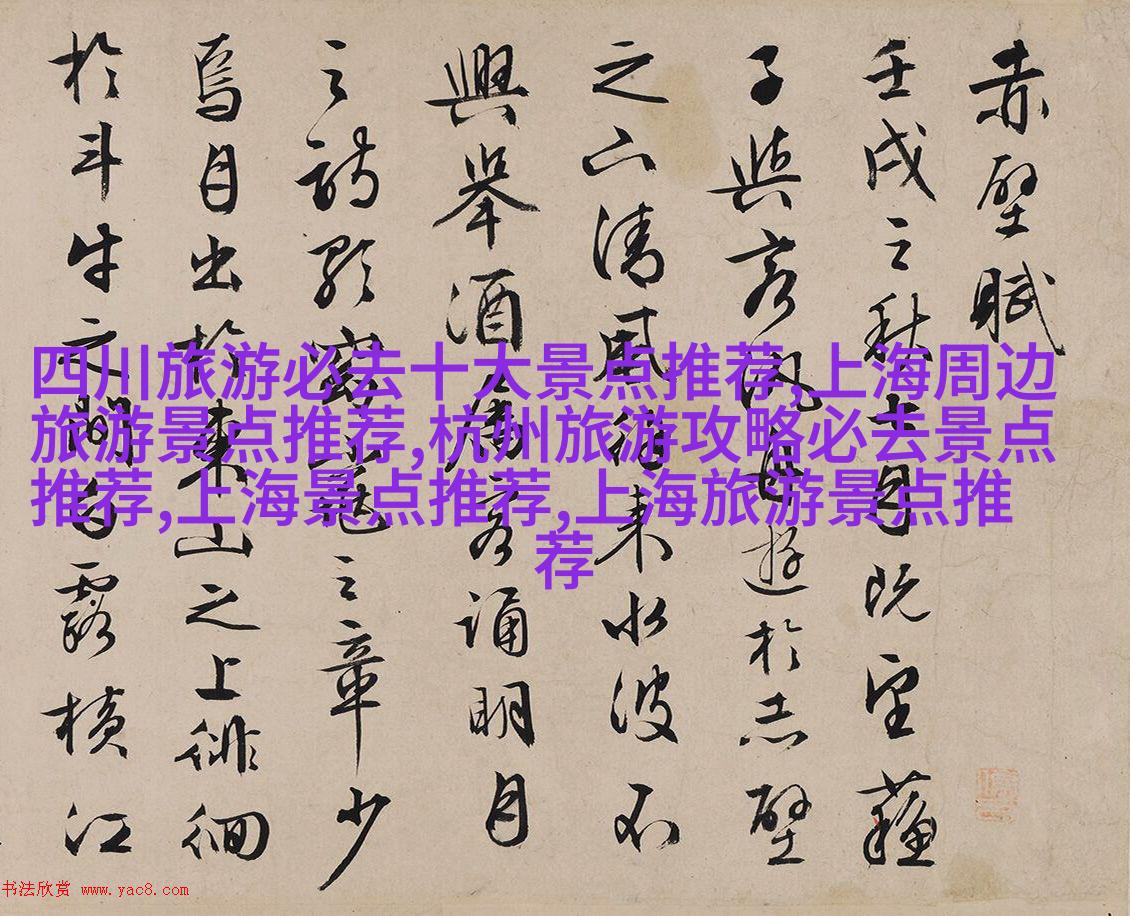 赤壁賦
壬戌之秋七月既望蘇
子與客泛舟遊於赤壁
之下清風徐來水波不
興舉酒屬客誦明月
之詩歌窈窕之章少
焉月出於東山之上徘徊
於斗牛之間白露橫江
四川旅游必去十大景点推荐,上海周边
旅游景点推荐,杭州旅游攻略必去景点
推荐,上海景点推荐,上海旅游景点推
荐
书法欣赏 www.yac8.com